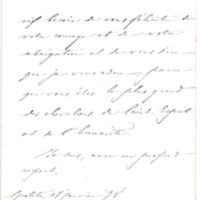 vif besoin de vous féliciter de
votre courage et de votre
abnégation et de vous dire
que je vous admire, parce
que vous êtes le plus grand
des chercheurs de
et de l'humanité.
Je suis, avec un profond
respect.
18 janvier 98